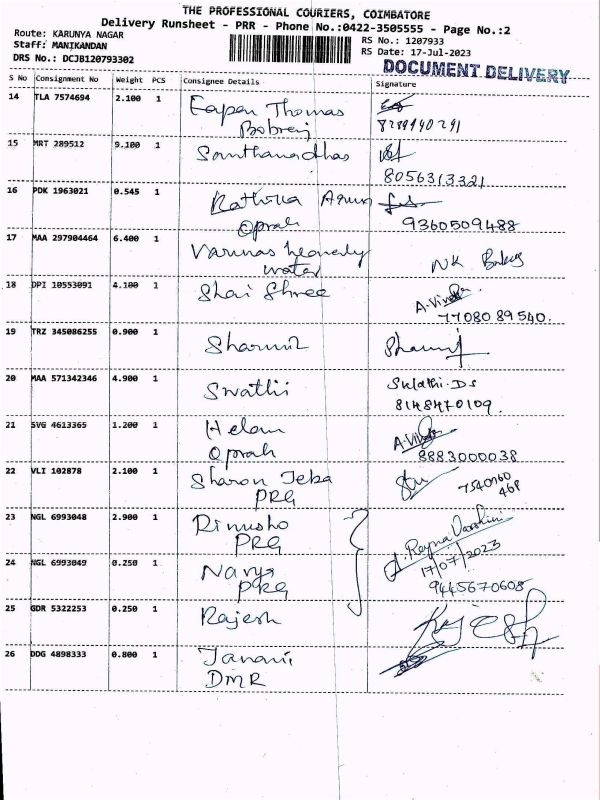 THE PROFESSIONAL COURIERS, COIMBATORE
Delivery Runsheet - PRR - Phone No.:0422-3505555 - Page No.:2
Route: KARUNYA NAGAR
RS No.: 1207933
Staff: MANIKANDAN
RS Date: 17-Jul-2023
DRS No.: DCJB120793302
DOCUMENT DELIVERY
S No Consignment No Weight PCS Consignee Details Signature
14 TLA 7574694 2.100 1 Eapen Thomas
8289940291
15 MRT 289512 9.100 1 Santhanadhas
8056313321
16 PDK 1963021 0.545 1 Arun
Oprah 9360509488
17 MAA 297904464 6.400 1 Varunas heavenly
water NK
18 DPI 10553091 4.100 1 Shai Shree A.
7708089540.
19 TRZ 345086255 0.900 1 Sharmil
20 MAA 571342346 4.900 1 Swathi Swathi.D.S
8148470109.
21 SVG 4613365 1.200 1 Helan
Oprah 8883000038
22 VLI 102878 2.100 1 Sharon Jeba
PRG 7540960
468
23 NGL 6993048 2.900 1 Rinusho
PRG Reyna Varshini
17/07/2023
24 NGL 6993049 0.250 1 Navya
PRG 9445670608
25 GDR 5322253 0.250 1 Rajesh Rajesh
26 DDG 4898333 0.800 1 Janani
DMR